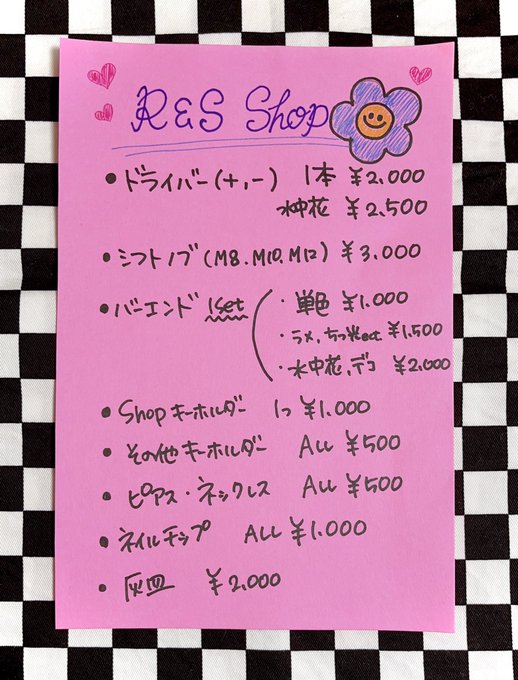 R&S Shop
• ドライバー(+,−) 1本 ¥2,000
水中花 ¥2,500
• シフトノブ(M8.M10.M12) ¥3,000
• バーエンド 1set
・単色 ¥1,000
・ラメ,ect ¥1,500
・水中花,デコ ¥2,000
• Shopキーホルダー 1つ ¥1,000
• その他キーホルダー ALL ¥500
• ピアス・ネックレス ALL ¥500
• ネイルチップ ALL ¥1,000
• 灰皿 ¥2,000